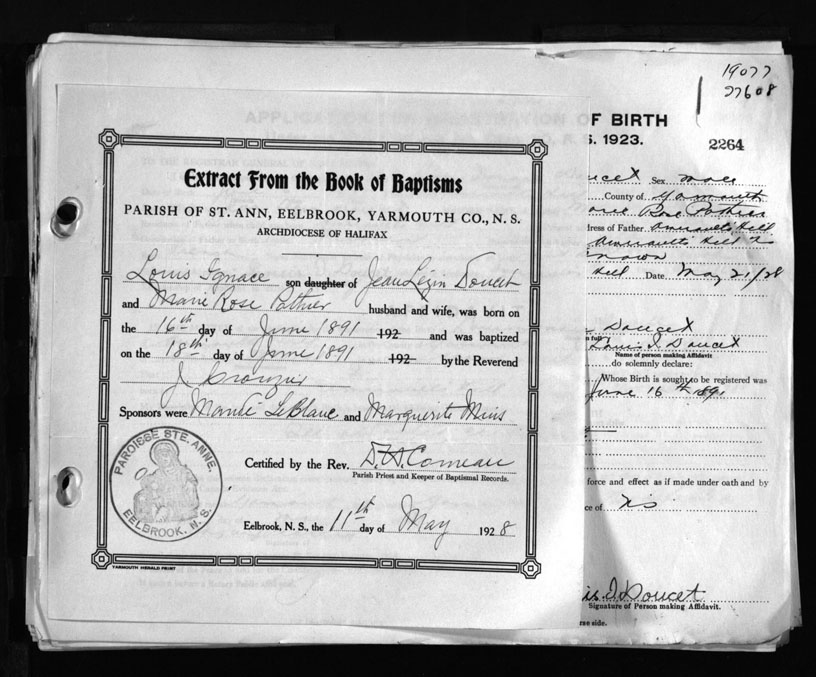 19077
27608
OF BIRTH
S. 1923.
2264
Extract From the Book of Baptisms
PARISH OF ST. ANN, EELBROOK, YARMOUTH CO., N. S.
ARCHDIOCESE OF HALIFAX
Louis Ignace son daughter of Jean Lezin Doucet
and Marie Rose Pothier husband and wife, was born on
the 16th day of June 1891 192 and was baptized
on the 18th day of June 1891 192 by the Reverend
J Crozier
Sponsors were Mandé LeBlanc and Marguerite Mius
Certified by the Rev. D. A. Comeau
Parish Priest and Keeper of Baptismal Records.
Eelbrook, N. S., the 11th day of May 1928
PAROISSE STE. ANNE.
EELBROOK, N. S.
YARMOUTH HERALD PRINT
ucet Sex male
County of Yarmouth
Marie Rose Pothier
dress of Father Amirault's Hill
Amirault's Hill N S
Hill Date May 21/28
Doucet
n full
Louis I. Doucet
Name of person making Affidavit
do solemnly declare:
Whose Birth is sought to be registered was
June 16th 1891
force and effect as if made under oath and by
ce of
is I Doucet
Signature of Person making Affidavit.
rse side.